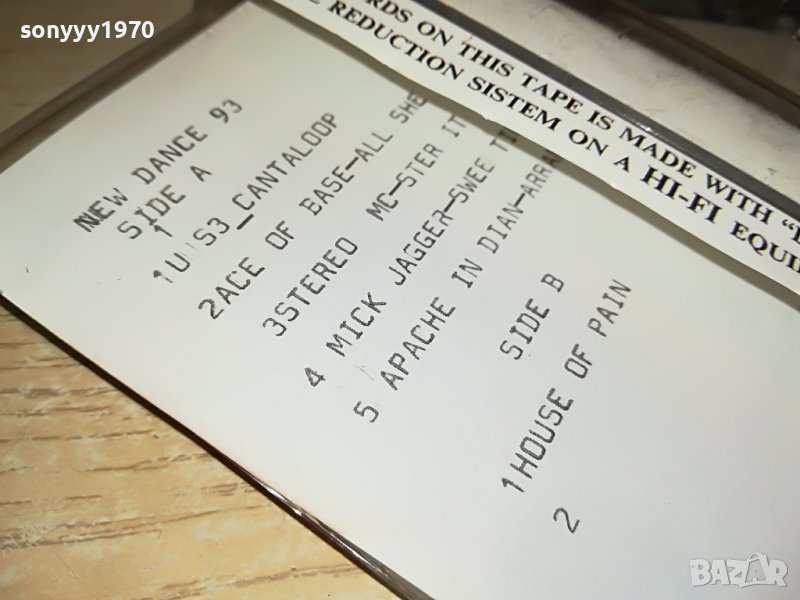 sonyyy1970
ON THIS TAPE IS MADE WITH
REDUCTION SISTEM ON A HI-FI
NEW DANCE 93
SIDE A
1
1U S3_CANTALOOP
2ACE OF BASE-ALL SHE
3STEREO MC-STER IT
4 MICK JAGGER-SWEE
5 APACHE IN DIAN-ARRA
SIDE B
1HOUSE OF PAIN
2
BAZAR